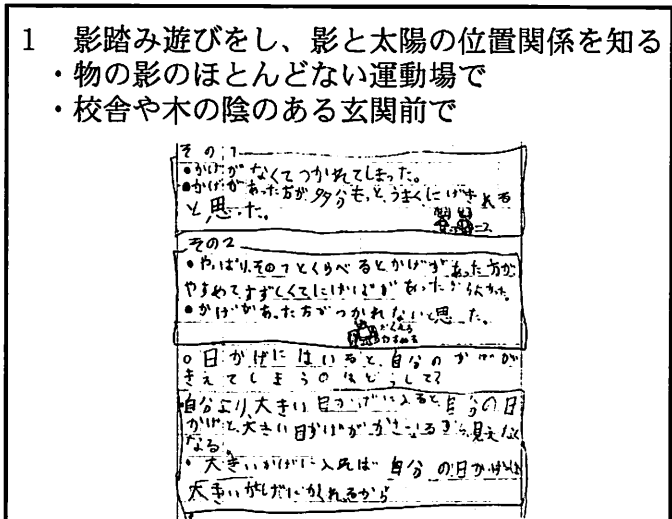 1 影踏み遊びをし、影と太陽の位置関係を知る
・物の影のほとんどない運動場で
・校舎や木の陰のある玄関前で
その1
•かげがなくてつかれてしまった。
•かげがあった方が多分もっとうまくにげきれる
と思った。
その2
•やっぱりその1とくらべるとかげがあった方が
やすめてすずしくてにげばがあったからよかった。
•かげがあった方がつかれないと思った。
○日かげにはいると、自分のかげが
きえてしまうのはどうして?
自分より大きい日かげに入ると自分の日
かげと大きい日かげがかさなるから見えなく
なる。
•大きいかげに入れば自分の日かげは
大きいかげにかくれるから